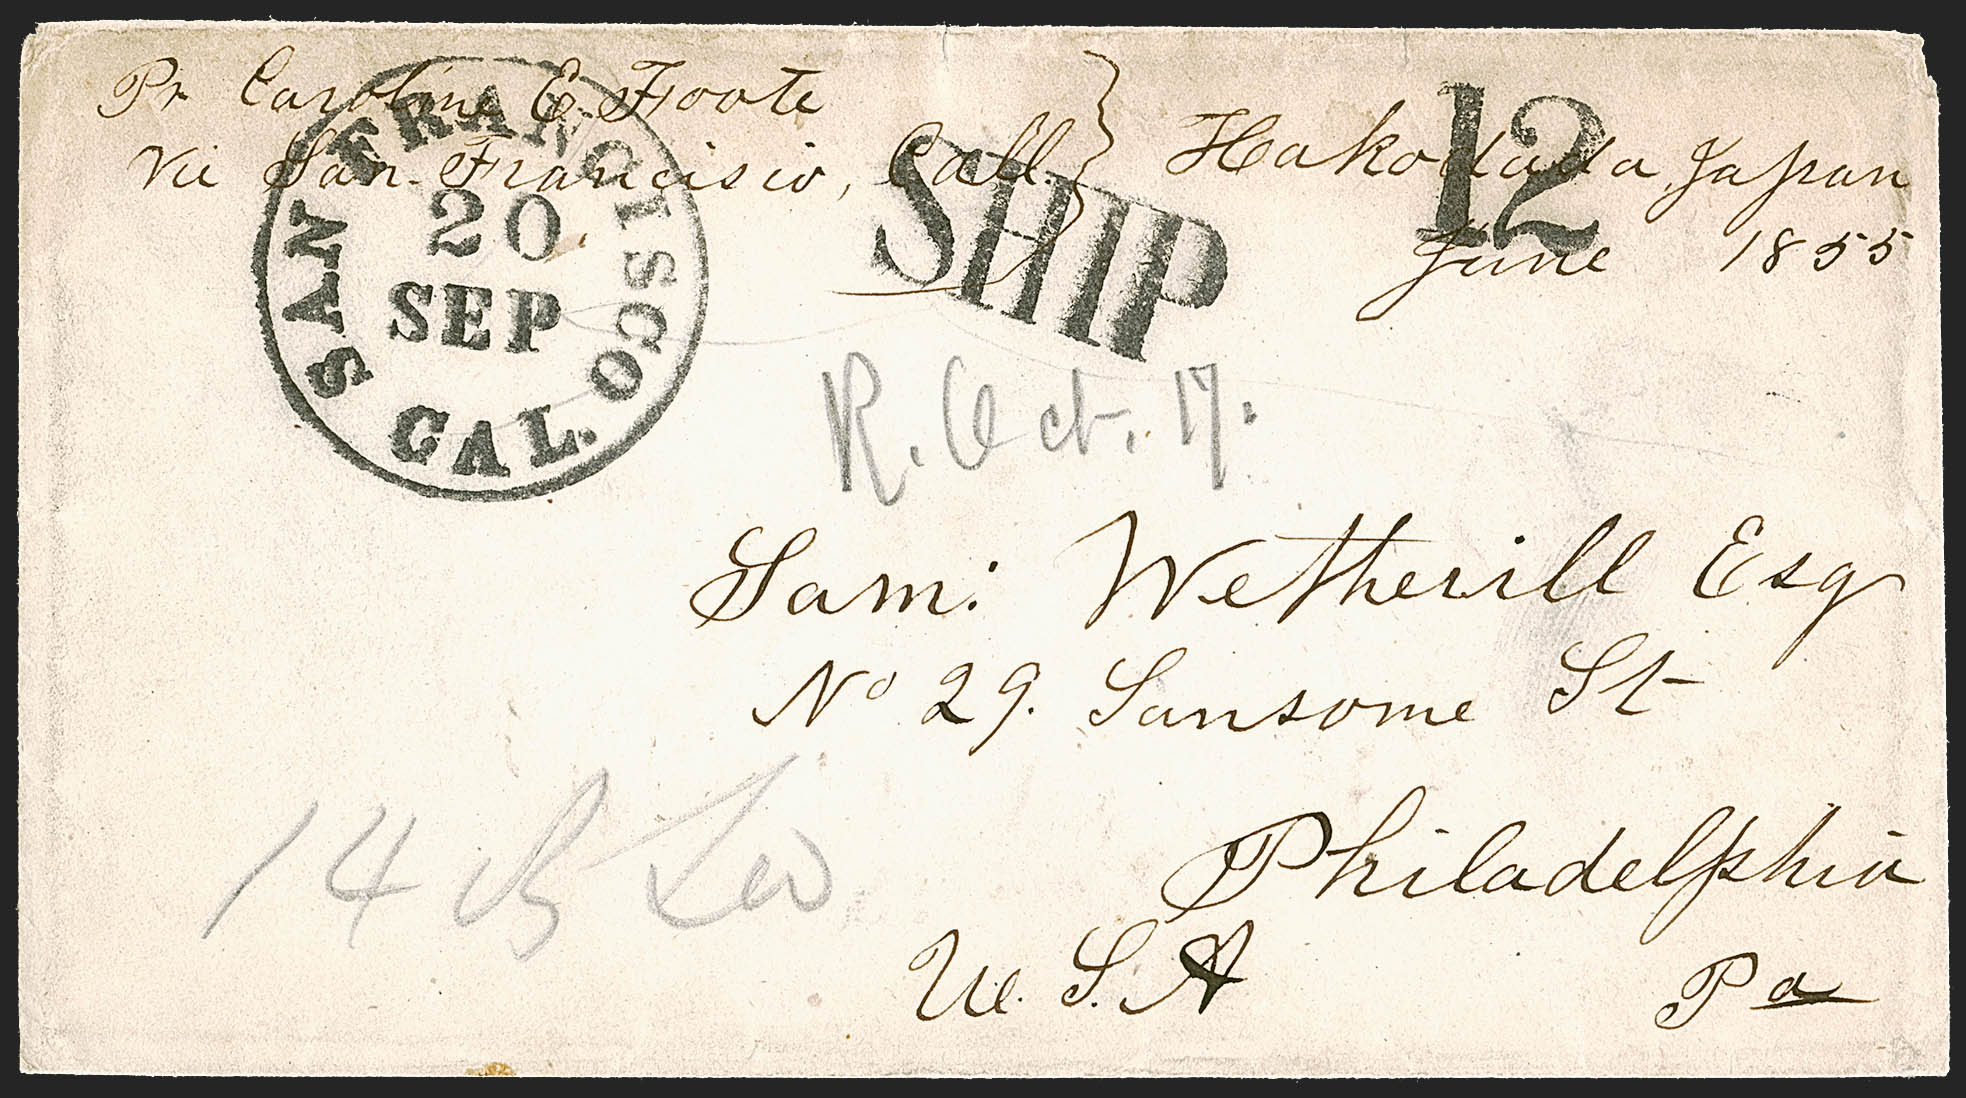 Pr Caroline E. Foote
Via San. Francisico, Call.
Hakodada Japan
June 1855
SAN FRANCISCO CAL.
20
SEP
SHIP
12
R. Oct. 17.
Sam: Wetherill Esq
No 29. Sansome St
Philadelphia
U. S. A
Pa
14